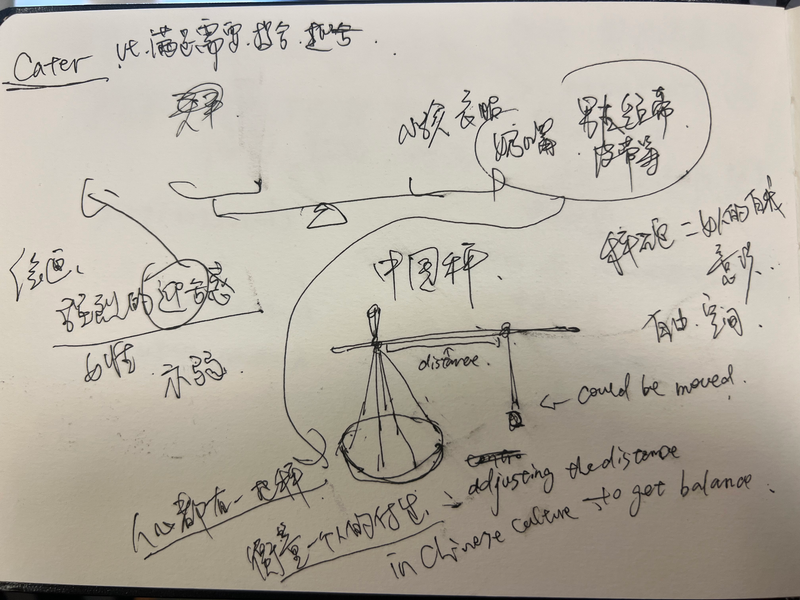 Cater vt. 满足需要. 投合. 迎合.
天平
小孩 衣服
奶嘴
男友 领带
皮带等
绘画、
强烈的迎合感
女性 示弱.
中国秤.
秤砣 = 女人的自我
意识.
自由. 空间.
distance.
← could be moved.
人心都有一把秤.
衡量一个人的付出.
adjusting the distance
in Chinese culture to get balance.